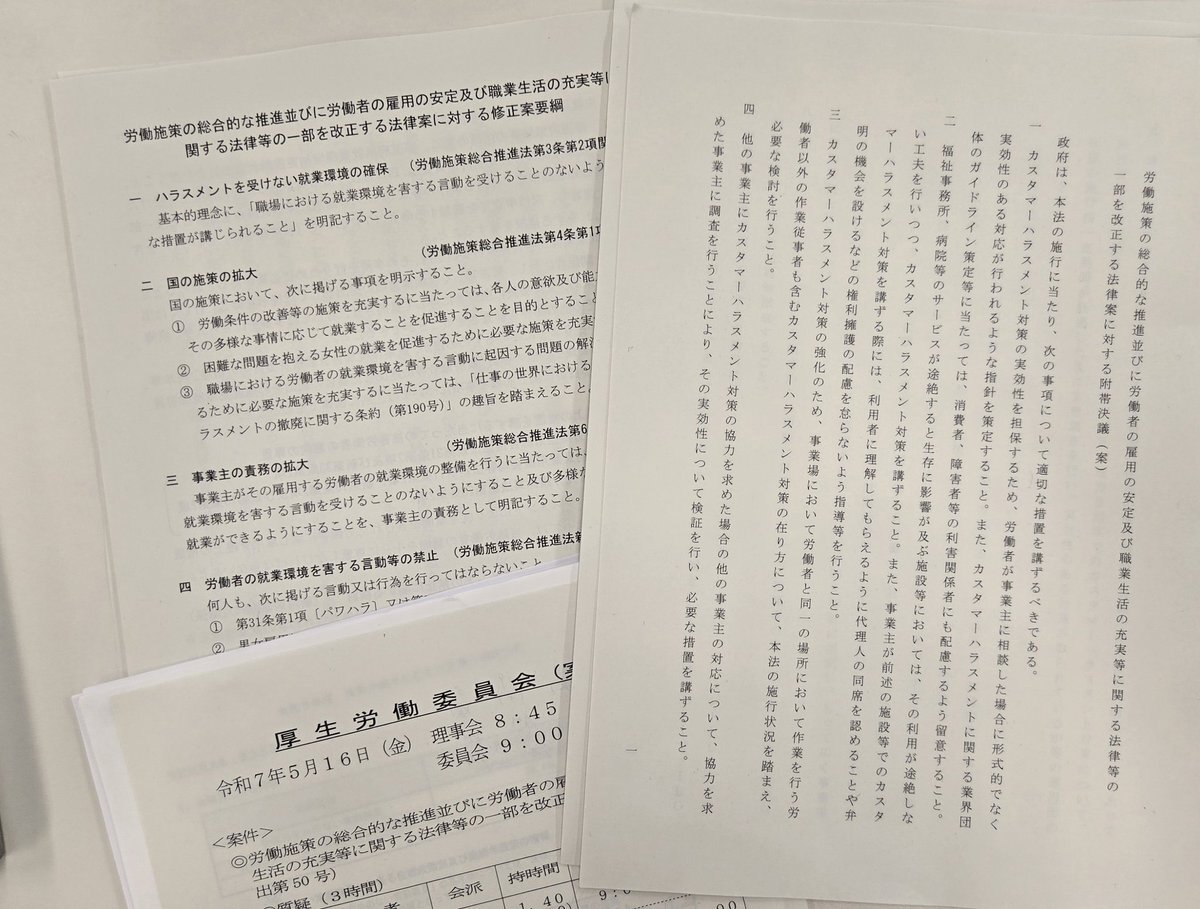 労働施策の総合的な推進並びに労働者の雇用の安定及び職業生活の充実等に
関する法律等の一部を改正する法律案に対する修正案要綱
一　ハラスメントを受けない就業環境の確保　（労働施策総合推進法第3条第2項関
基本的理念に、「職場における就業環境を害する言動を受けることのないよう
な措置が講じられること」を明記すること。
（労働施策総合推進法第4条第1項
二　国の施策の拡大
国の施策において、次に掲げる事項を明示すること。
①　労働条件の改善等の施策を充実するに当たっては、各人の意欲及び能力
その多様な事情に応じて就業することを促進することを目的とすること
②　困難な問題を抱える女性の就業を促進するために必要な施策を充実
③　職場における労働者の就業環境を害する言動に起因する問題の解決
るために必要な施策を充実するに当たっては、「仕事の世界における
ラスメントの撤廃に関する条約（第190号）」の趣旨を踏まえること。
（労働施策総合推進法第6
三　事業主の責務の拡大
事業主がその雇用する労働者の就業環境の整備を行うに当たっては、
就業環境を害する言動を受けることのないようにすること及び多様な
就業ができるようにすることを、事業主の責務として明記すること。
四　労働者の就業環境を害する言動等の禁止　（労働施策総合推進法第
何人も、次に掲げる言動又は行為を行ってはならないこと
①　第31条第1項［パワハラ］又は
②
厚生労働委員会（
令和7年5月16日（金）　理事会　8：45
委員会　9：00
＜案件＞
◎労働施策の総合的な推進並びに労働者の雇
生活の充実等に関する法律等の一部を改正
出第50号）
質疑（3時間）
会派　持時間
労働施策の総合的な推進並びに労働者の雇用の安定及び職業生活の充実等に関する法律等の
一部を改正する法律案に対する附帯決議（案）
政府は、本法の施行に当たり、次の事項について適切な措置を講ずるべきである。
一　カスタマーハラスメント対策の実効性を担保するため、労働者が事業主に相談した場合に形式的でなく
実効性のある対応が行われるような指針を策定すること。また、カスタマーハラスメントに関する業界団
体のガイドライン策定等に当たっては、消費者、障害者等の利害関係者にも配慮するよう留意すること。
二　福祉事務所、病院等のサービスが途絶すると生存に影響が及ぶ施設等においては、その利用が途絶しな
い工夫を行いつつ、カスタマーハラスメント対策を講ずること。また、事業主が前述の施設等でのカスタ
マーハラスメント対策を講ずる際には、利用者に理解してもらえるように代理人の同席を認めることや弁
明の機会を設けるなどの権利擁護の配慮を怠らないよう指導等を行うこと。
三　カスタマーハラスメント対策の強化のため、事業場において労働者と同一の場所において作業を行う労
働者以外の作業従事者も含むカスタマーハラスメント対策の在り方について、本法の施行状況を踏まえ、
必要な検討を行うこと。
四　他の事業主にカスタマーハラスメント対策の協力を求めた場合の他の事業主の対応について、協力を求
めた事業主に調査を行うことにより、その実効性について検証を行い、必要な措置を講ずること。
一